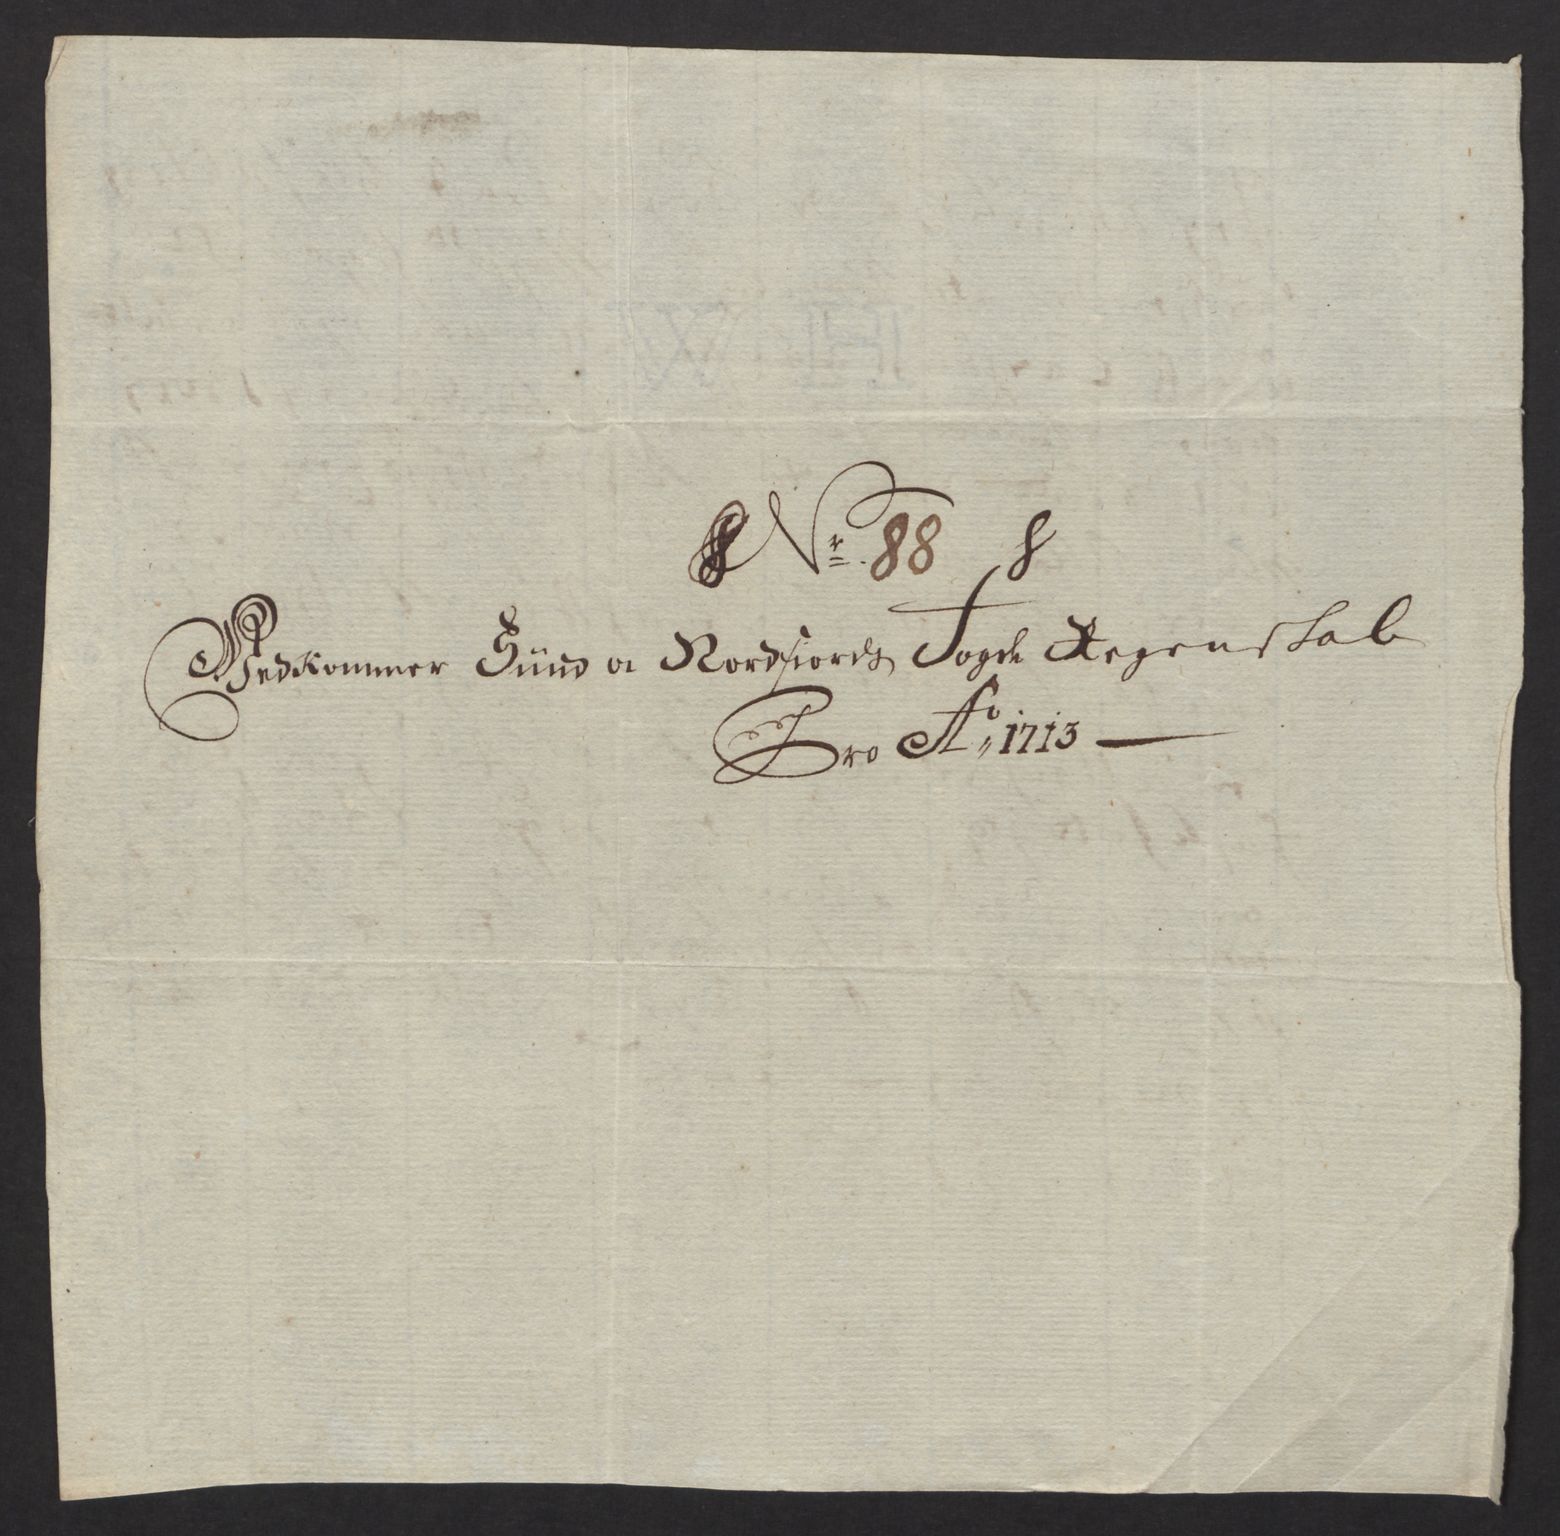 Nr. 88
Vedkommer Sünd oe Nordfiords Fogde Regenskab
Pro Ao, 1713